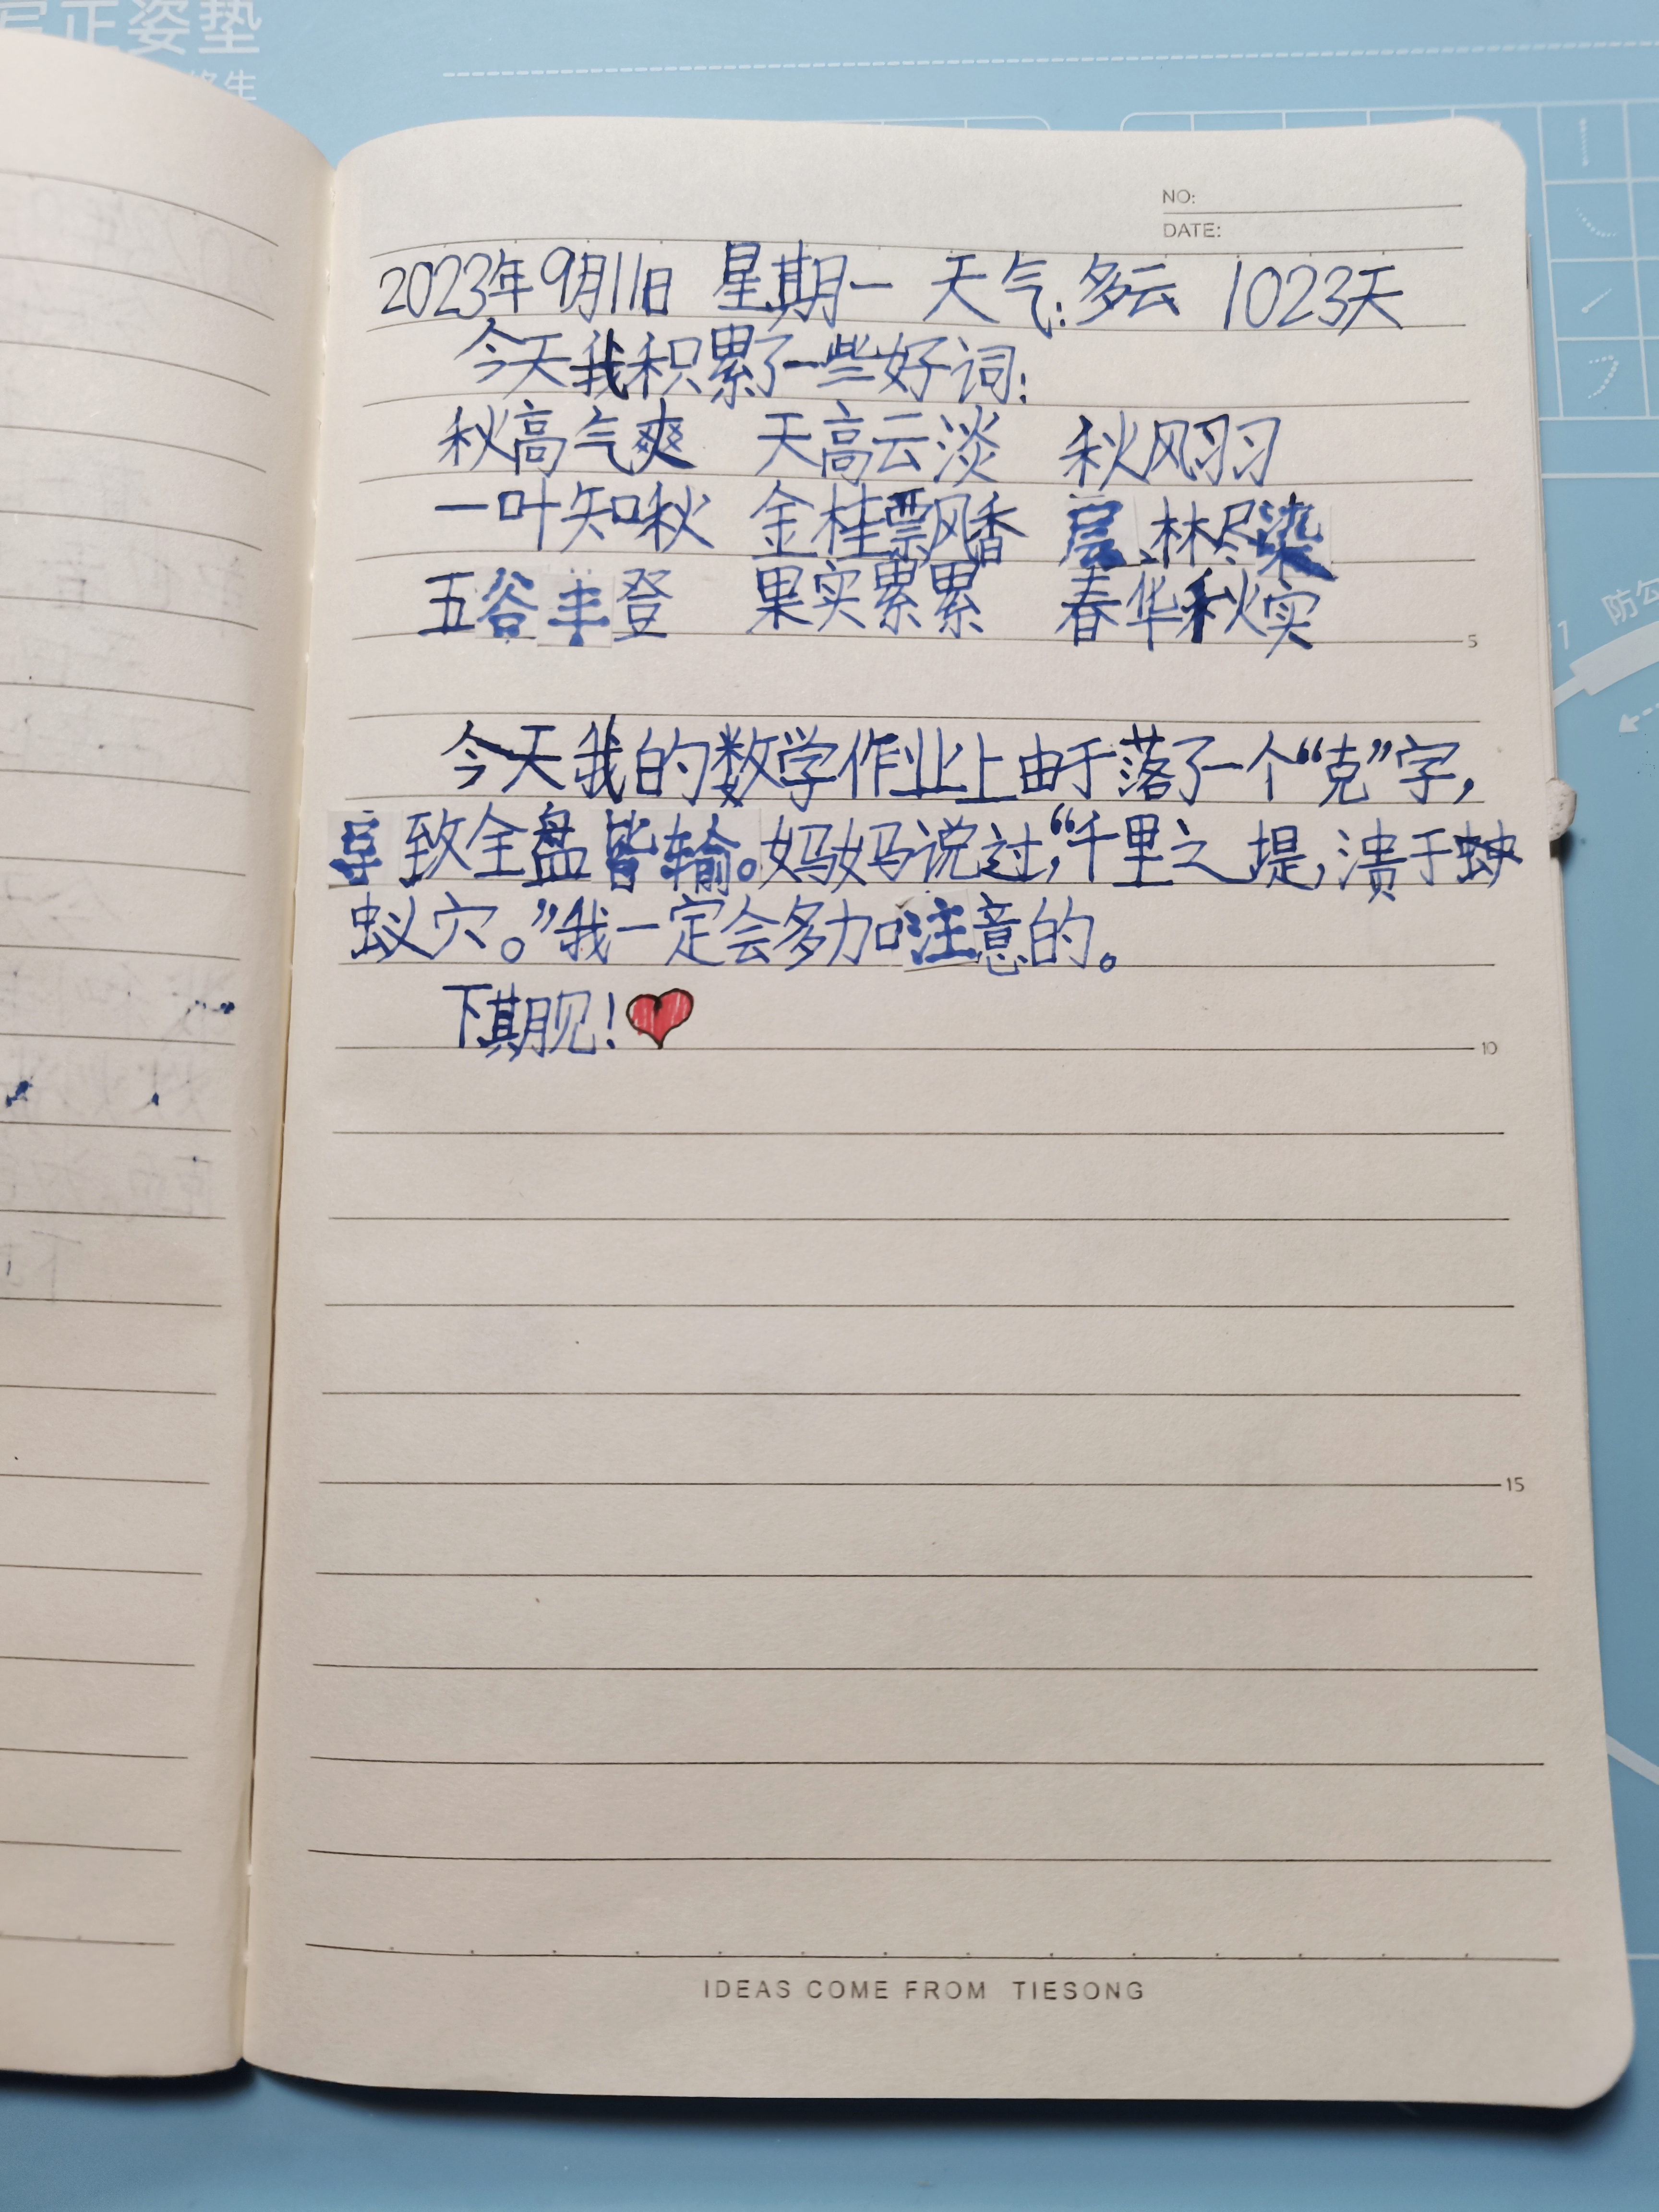 写正姿垫
NO:
DATE:
2023年9月11日 星期一 天气:多云 1023天
今天我积累了一些好词:
秋高气爽 天高云淡 秋风习习
一叶知秋 金桂飘香 层林尽染
五谷丰登 果实累累 春华秋实
5
今天我的数学作业上由于落了一个“克”字,
导致全盘皆输。妈妈说过,“千里之提,溃于蚰
蚁穴。”我一定会多加注意的。
下期见!
10
15
IDEAS COME FROM TIESONG
防勾
1